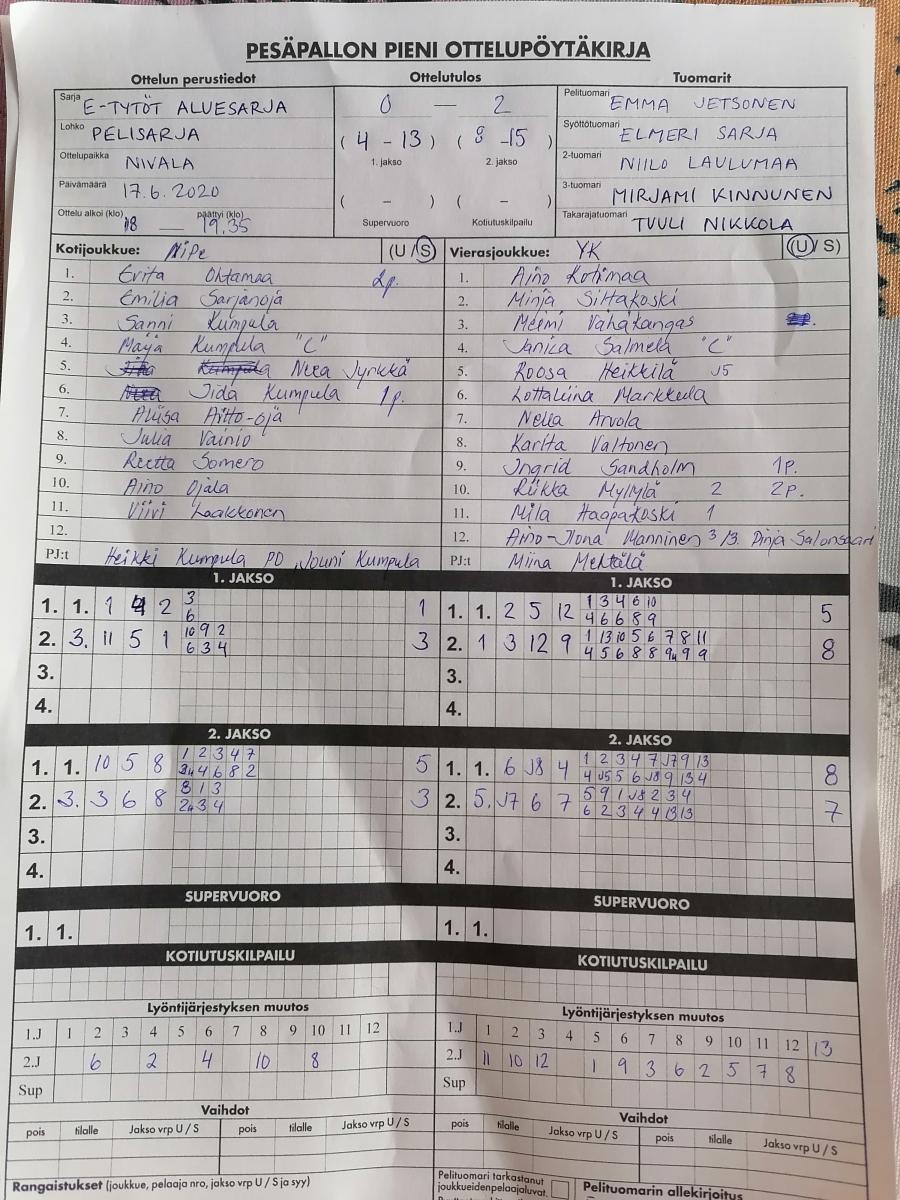 PESÄPALLON PIENI OTTELUPÖYTÄKIRJA
Ottelun perustiedot Ottelutulos Tuomarit
Sarja E-TYTÖT ALUESARJA
Lohko PELISARJA
Ottelupaikka NIVALA
Päivämäärä 17.6.2020
Ottelu alkoi (klo) 18 — päättyi (klo) 19.35
0 — 2
( 4 - 13 ) ( 8 - 15 )
1. jakso 2. jakso
( - ) ( - )
Supervuoro Kotiutuskilpailu
Pelituomari EMMA JETSONEN
Syöttötuomari ELMERI SARJA
2-tuomari NIILO LAULUMAA
3-tuomari MIRJAMI KINNUNEN
Takarajatuomari TUULI NIKKOLA
Kotijoukkue: NiPe (U / S)
1. Erita Ohtamaa 2p.
2. Emilia Sarjanoja
3. Sanni Kumpula
4. Maija Kumpula "C"
5. Neea Jyrkkä
6. Iida Kumpula 1p.
7. Aliisa Aitto-oja
8. Julia Vainio
9. Reetta Somero
10. Aino Ojala
11. Viivi Laakkonen
12.
PJ:t Heikki Kumpula PO, Jouni Kumpula
Vierasjoukkue: YK (U / S)
1. Aino Kotimaa
2. Minja Siltakoski
3. Meimi Vähäkangas
4. Janica Salmela "C"
5. Roosa Heikkilä J5
6. Lottaliina Markkula
7. Nella Arvola
8. Karita Valtonen
9. Ingrid Sandholm 1p.
10. Riikka Myllylä 2 2p.
11. Mila Haapakoski 1
12. Aino-Ilona Manninen 3 /13. Pinja Salonsaari
PJ:t Miina Mehtälä
1. JAKSO
1. 1. 1 4 2 3 1
6
2. 3. 11 5 1 10 9 2 3
6 3 4
3.
4.
1. JAKSO
1. 1. 2 5 12 1 3 4 6 10 5
4 6 6 8 9
2. 1 3 12 9 1 13 10 5 6 7 8 11 8
4 5 6 8 8 9 9 9
3.
4.
2. JAKSO
1. 1. 10 5 8 1 2 3 4 7 5
4 6 8 2
2. 3. 3 6 8 8 1 3 3
3 4
3.
4.
2. JAKSO
1. 1. 6 J8 4 1 2 3 4 7 J7 9 13 8
4 J5 5 6 J8 9 13 4
2. 5. J7 6 7 5 9 1 J8 2 3 4 7
6 2 3 4 4 13 13
3.
4.
SUPERVUORO
1. 1.
SUPERVUORO
1. 1.
KOTIUTUSKILPAILU
KOTIUTUSKILPAILU
Lyöntijärjestyksen muutos
1.J 1 2 3 4 5 6 7 8 9 10 11 12
2.J 6 2 4 10 8
Sup
Lyöntijärjestyksen muutos
1.J 1 2 3 4 5 6 7 8 9 10 11 12 13
2.J 11 10 12 1 9 3 6 2 5 7 8
Sup
Vaihdot
pois tilalle Jakso vrp U / S pois tilalle Jakso vrp U / S
Vaihdot
pois tilalle Jakso vrp U / S pois tilalle Jakso vrp U / S
Rangaistukset (joukkue, pelaaja nro, jakso vrp U / S ja syy)
Pelituomari tarkastanut
joukkueidenpelaajaluvat.
Pelituomarin allekirjoitus